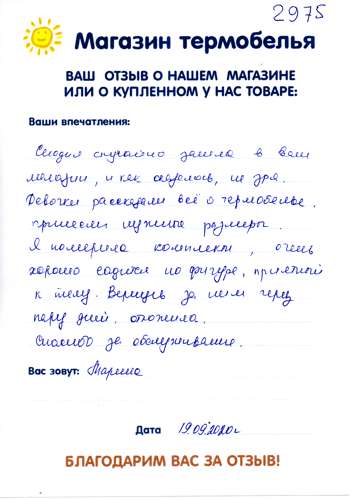 2975
Магазин термобелья
ВАШ ОТЗЫВ О НАШЕМ МАГАЗИНЕ
ИЛИ О КУПЛЕННОМ У НАС ТОВАРЕ:
Ваши впечатления:
Сегодня случайно зашла в Ваш
магазин, и как оказалось, не зря.
Девочки рассказали всё о термобелье.
принесли нужные размеры.
Я померила комплект, очень
хорошо садится по фигуре, приятный
к телу. Вернусь за ним через
пару дней. отложила.
Спасибо за обслуживание.
Вас зовут: Марина
Дата 19.09.2020г.
БЛАГОДАРИМ ВАС ЗА ОТЗЫВ!